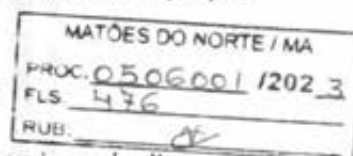 MATÕES DO NORTE / MA
PROC. 0506001 /2023
FLS. 476
RUB.